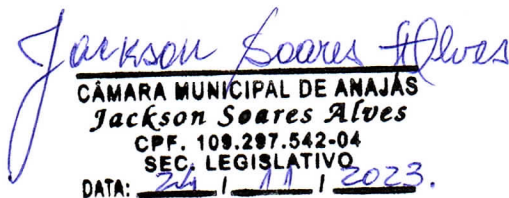 Jackson Soares Alves
CÂMARA MUNICIPAL DE ANAJÁS
Jackson Soares Alves
CPF. 109.297.542-04
SEC. LEGISLATIVO
DATA: 24 / 11 / 2023.